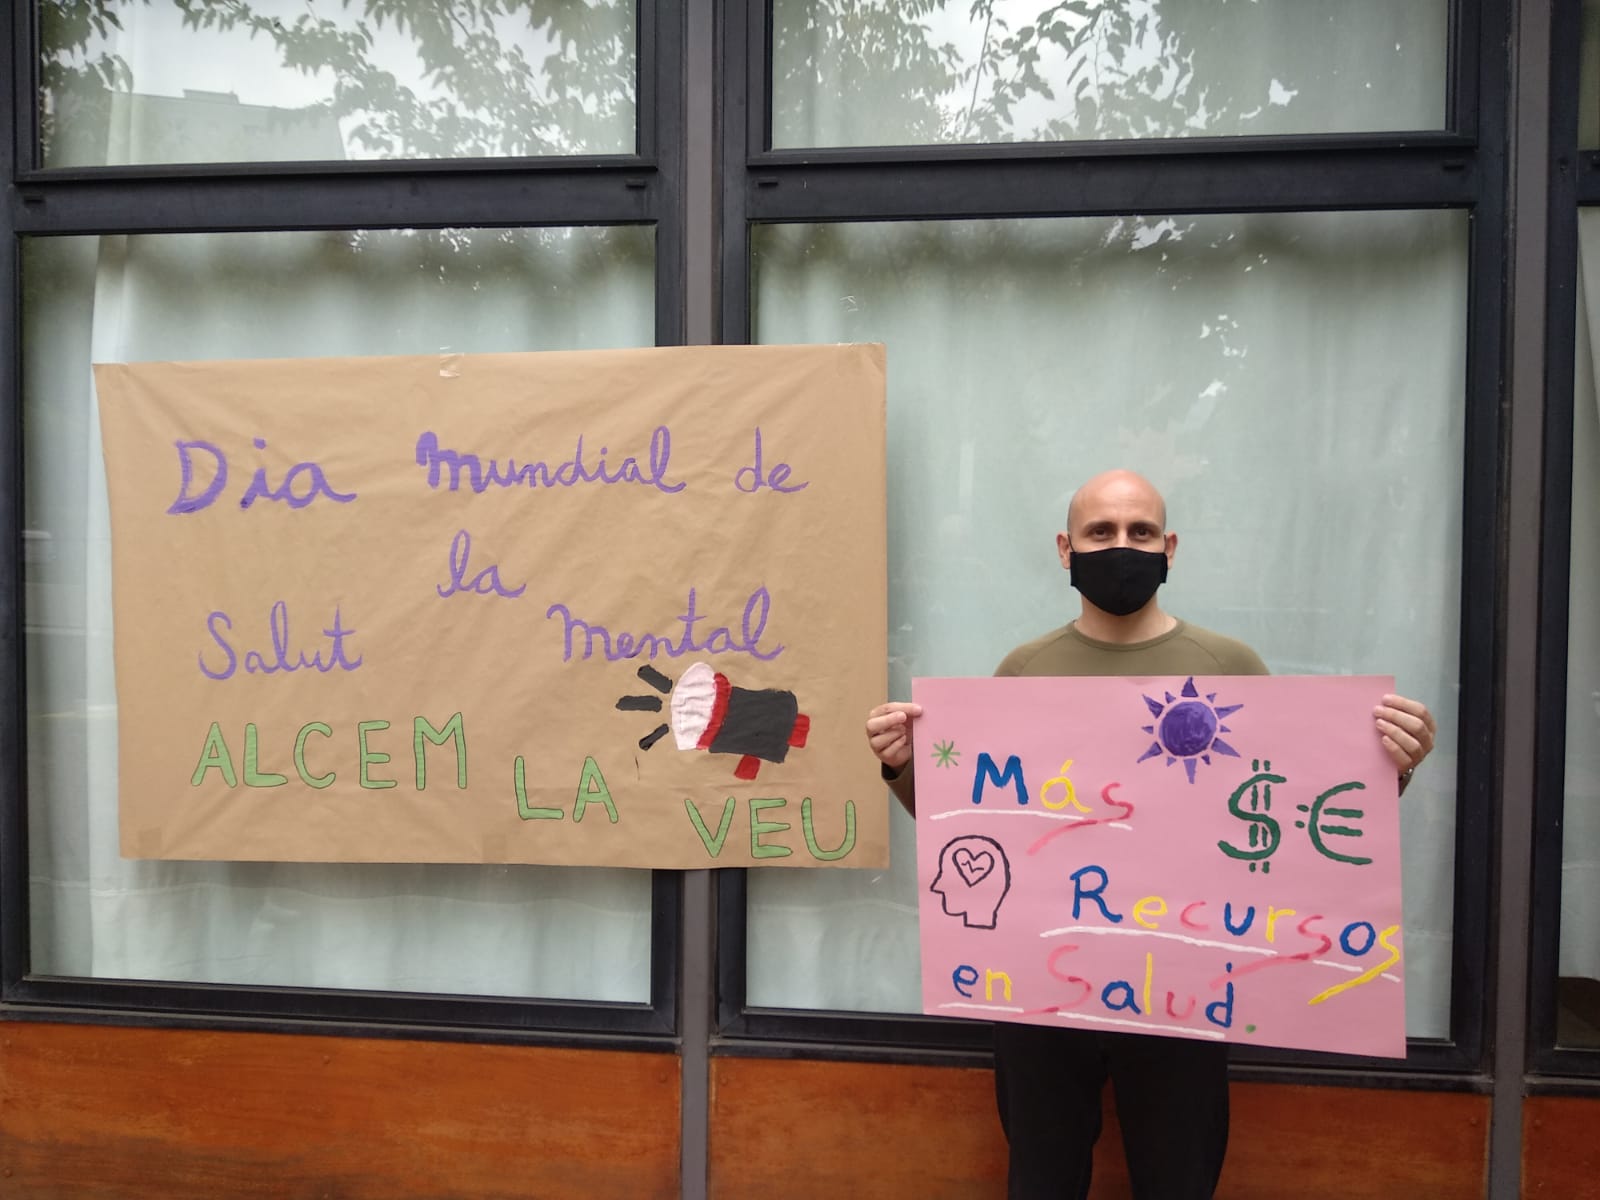 Dia mundial de
la
Salut mental
ALCEM
LA
VEU
* Más
$:€
Recursos
en Salud.